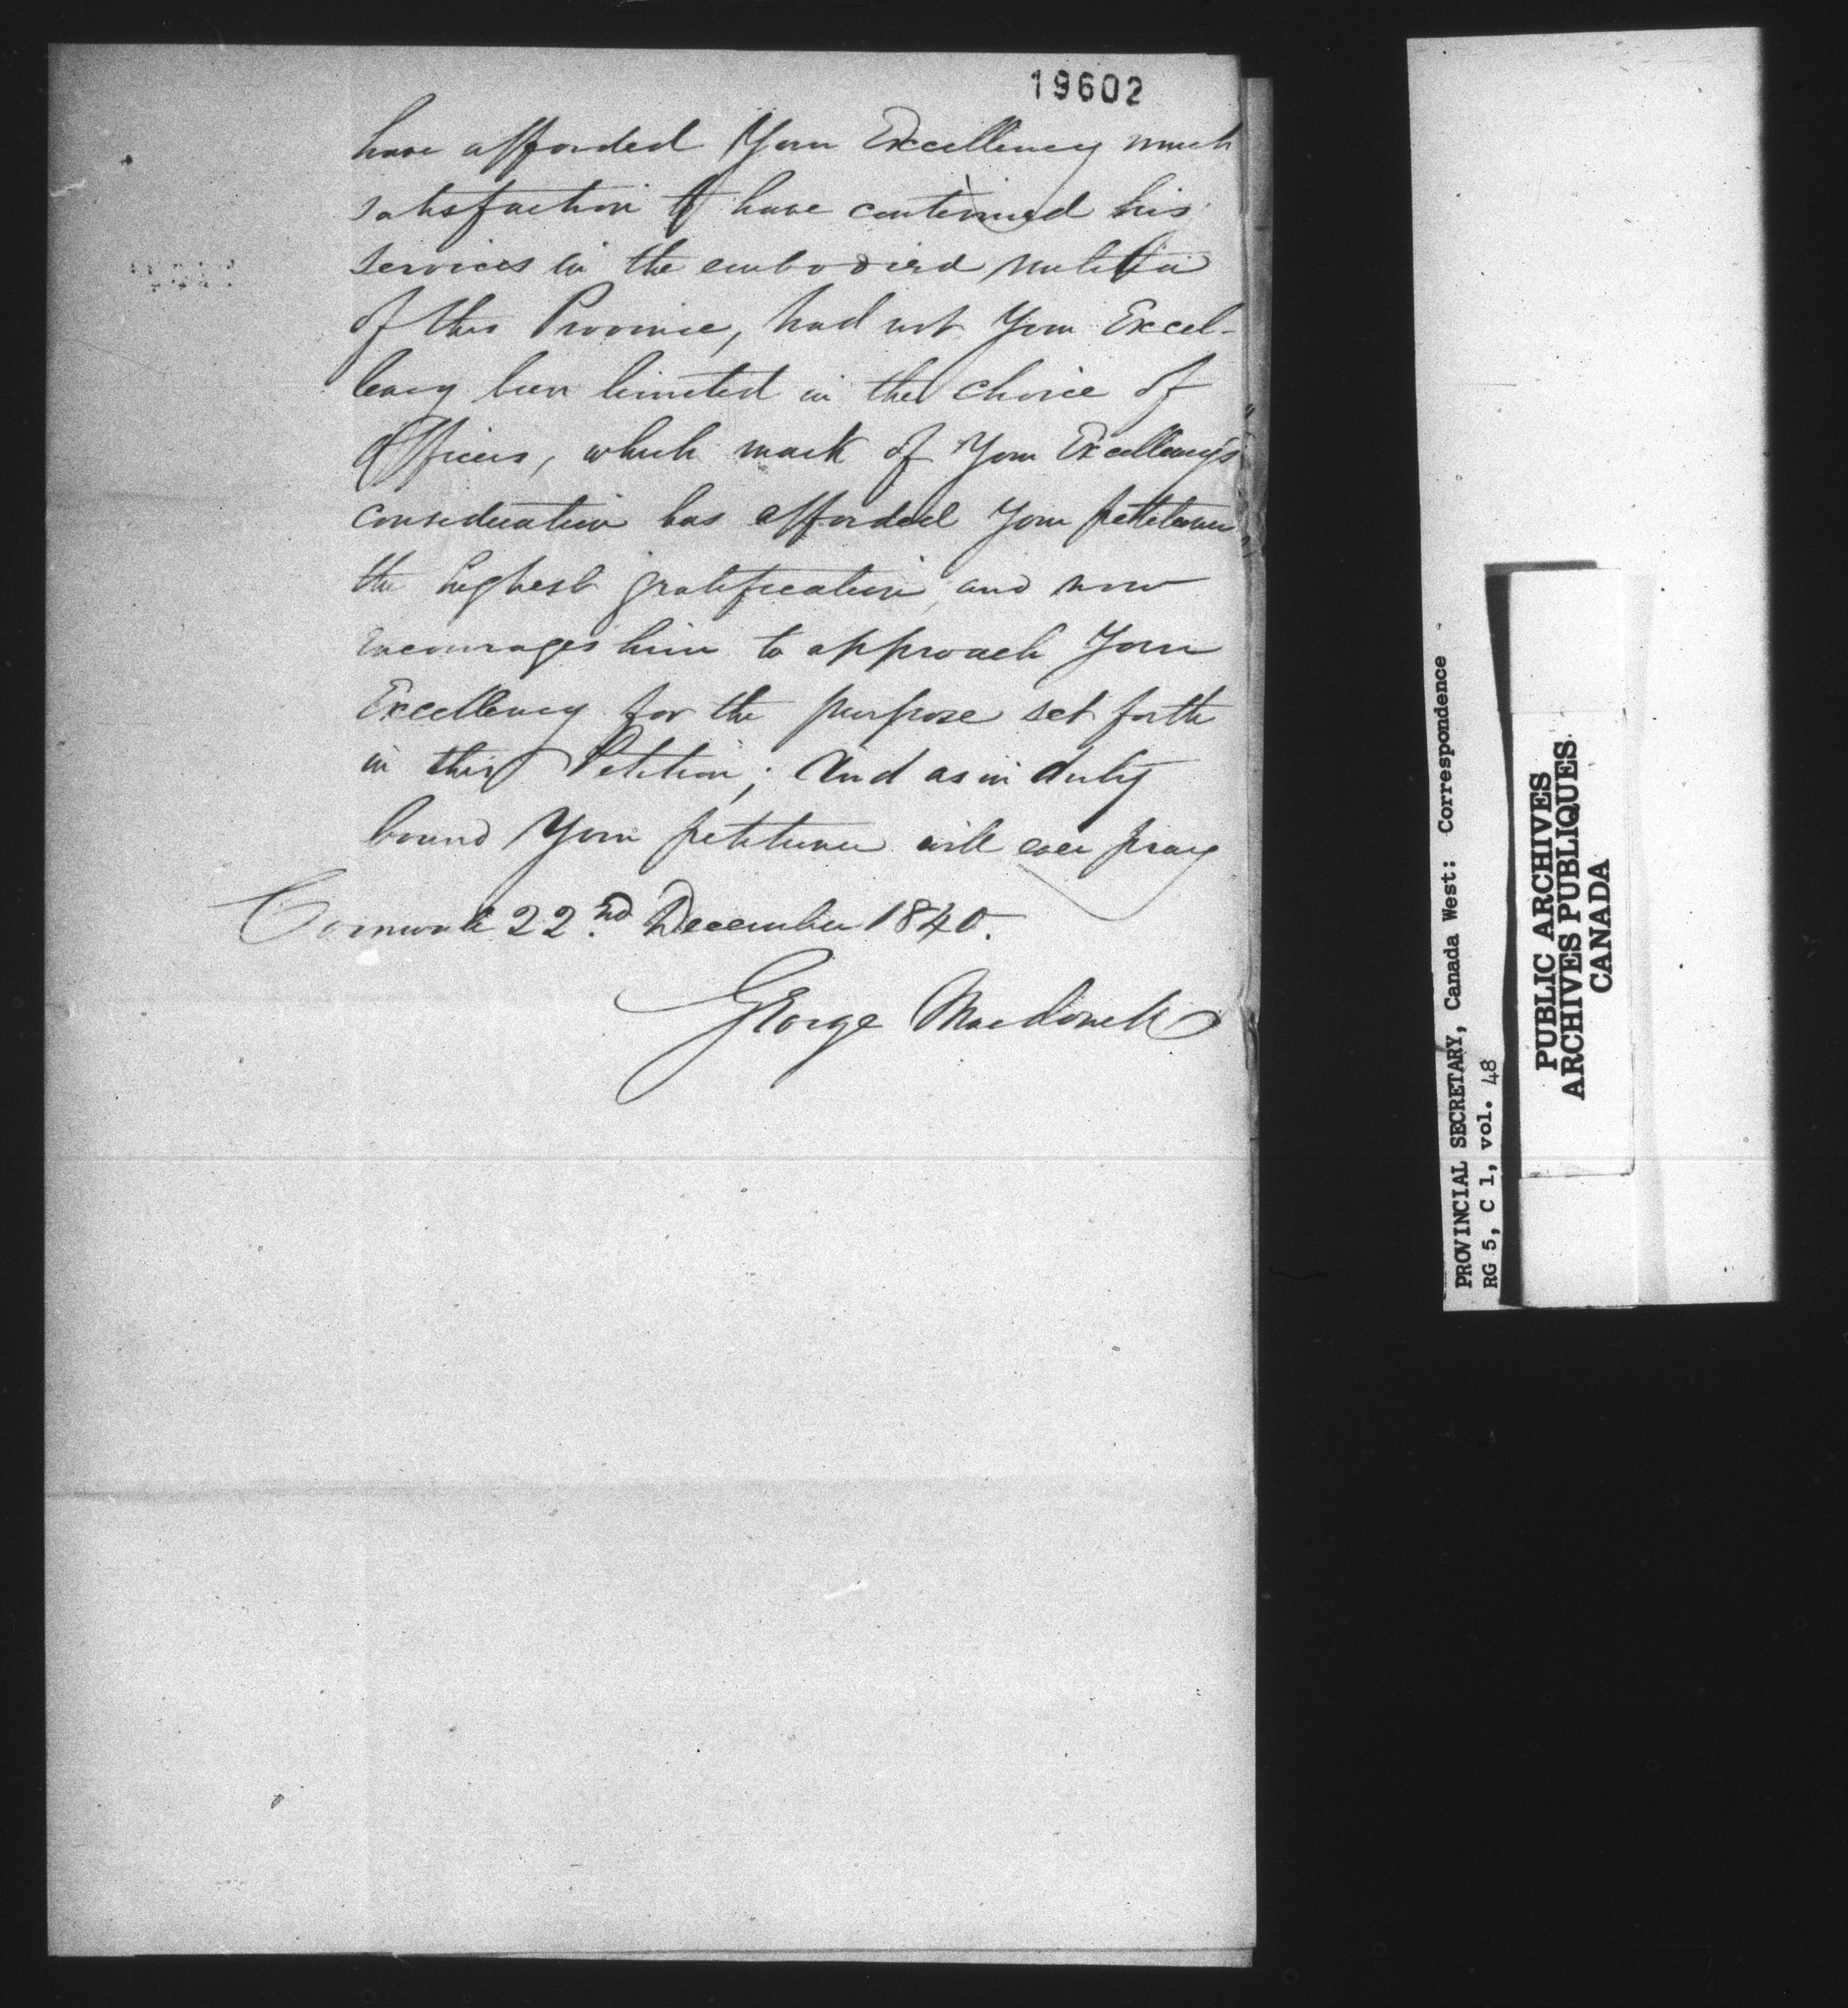 19602
have afforded Your Excellency much
satisfaction to have continued his
services in the embodied militia
of this Province, had not Your Excel-
lency been limited in the choice of
Officers, which mark of Your Excellency's
consideration has afforded Your petitioner
the highest gratification, and now
encourages him to approach Your
Excellency for the purpose set forth
in this Petition; And as in duty
bound Your petitioner will ever pray
Cornwall 22nd December 1840.
George Macdonell
PROVINCIAL SECRETARY, Canada West: Correspondence -
RG 5, C 1, vol. 48
PUBLIC ARCHIVES
ARCHIVES PUBLIQUES
CANADA